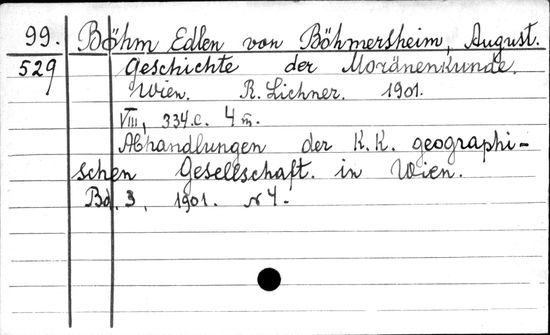 99. Böhm Edlen von Böhmersheim, August.
529 Geschichte der Moränenkunde.
Wien. R. Lichner. 1901.
VIII, 334 c. 4 m.
Abhandlungen der K.K. geographi-
schen Gesellschaft. in Wien.
Bd. 3, 1901. N 4.